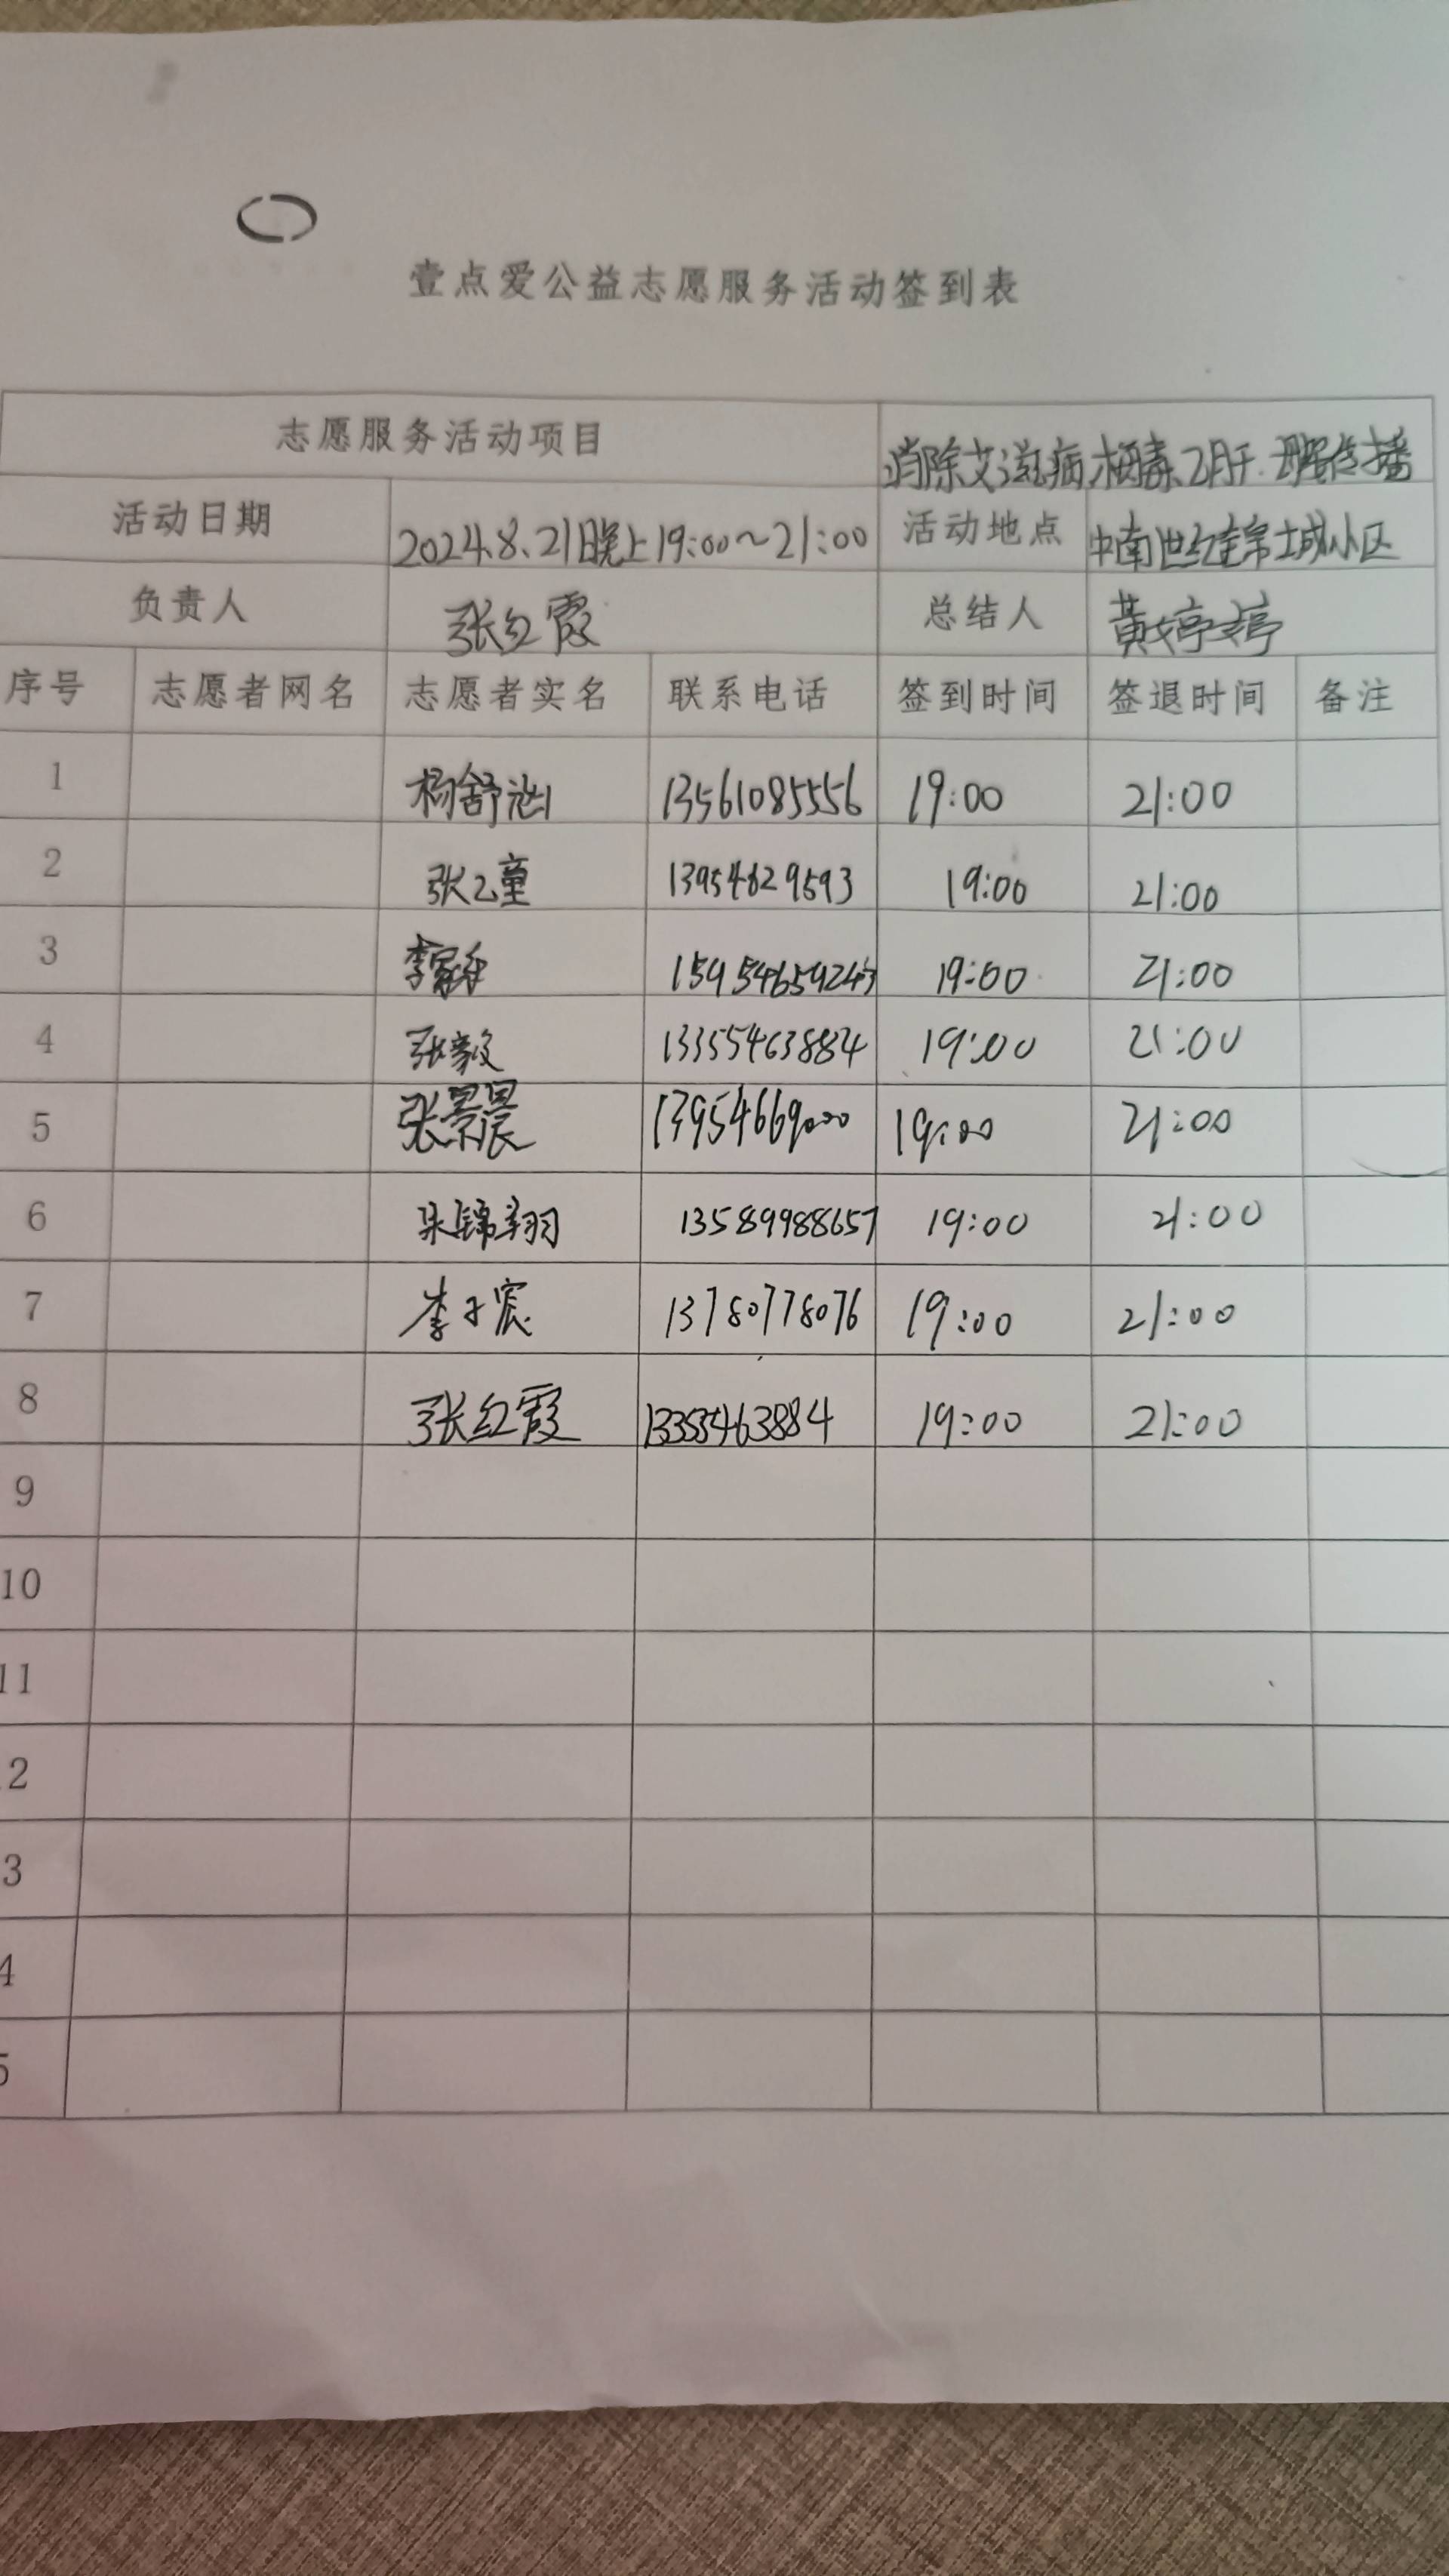 壹点爱公益志愿服务活动签到表
志愿服务活动项目 消除艾滋病、梅毒、乙肝、母婴传播
活动日期 2024.8.21日晚上19:00～21:00 活动地点 中南世纪锦城小区
负责人 张红霞 总结人 黄婷婷
序号 志愿者网名 志愿者实名 联系电话 签到时间 签退时间 备注
1 杨舒涵 13561085556 19:00 21:00
2 张乙童 13954629593 19:00 21:00
3 李 15954659243 19:00 21:00
4 张毅 13355463884 19:00 21:00
5 张景晨 13954669000 19:00 21:00
6 朱锦翔 13589988657 19:00 21:00
7 李子宸 13780778076 19:00 21:00
8 张红霞 13355463884 19:00 21:00
9
10
11
2
3
4
5